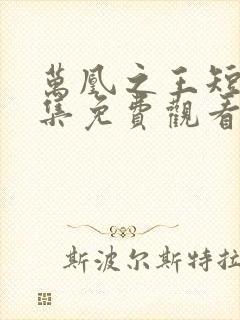 萬凰之王短
集免費觀看
斯波尔斯特拉